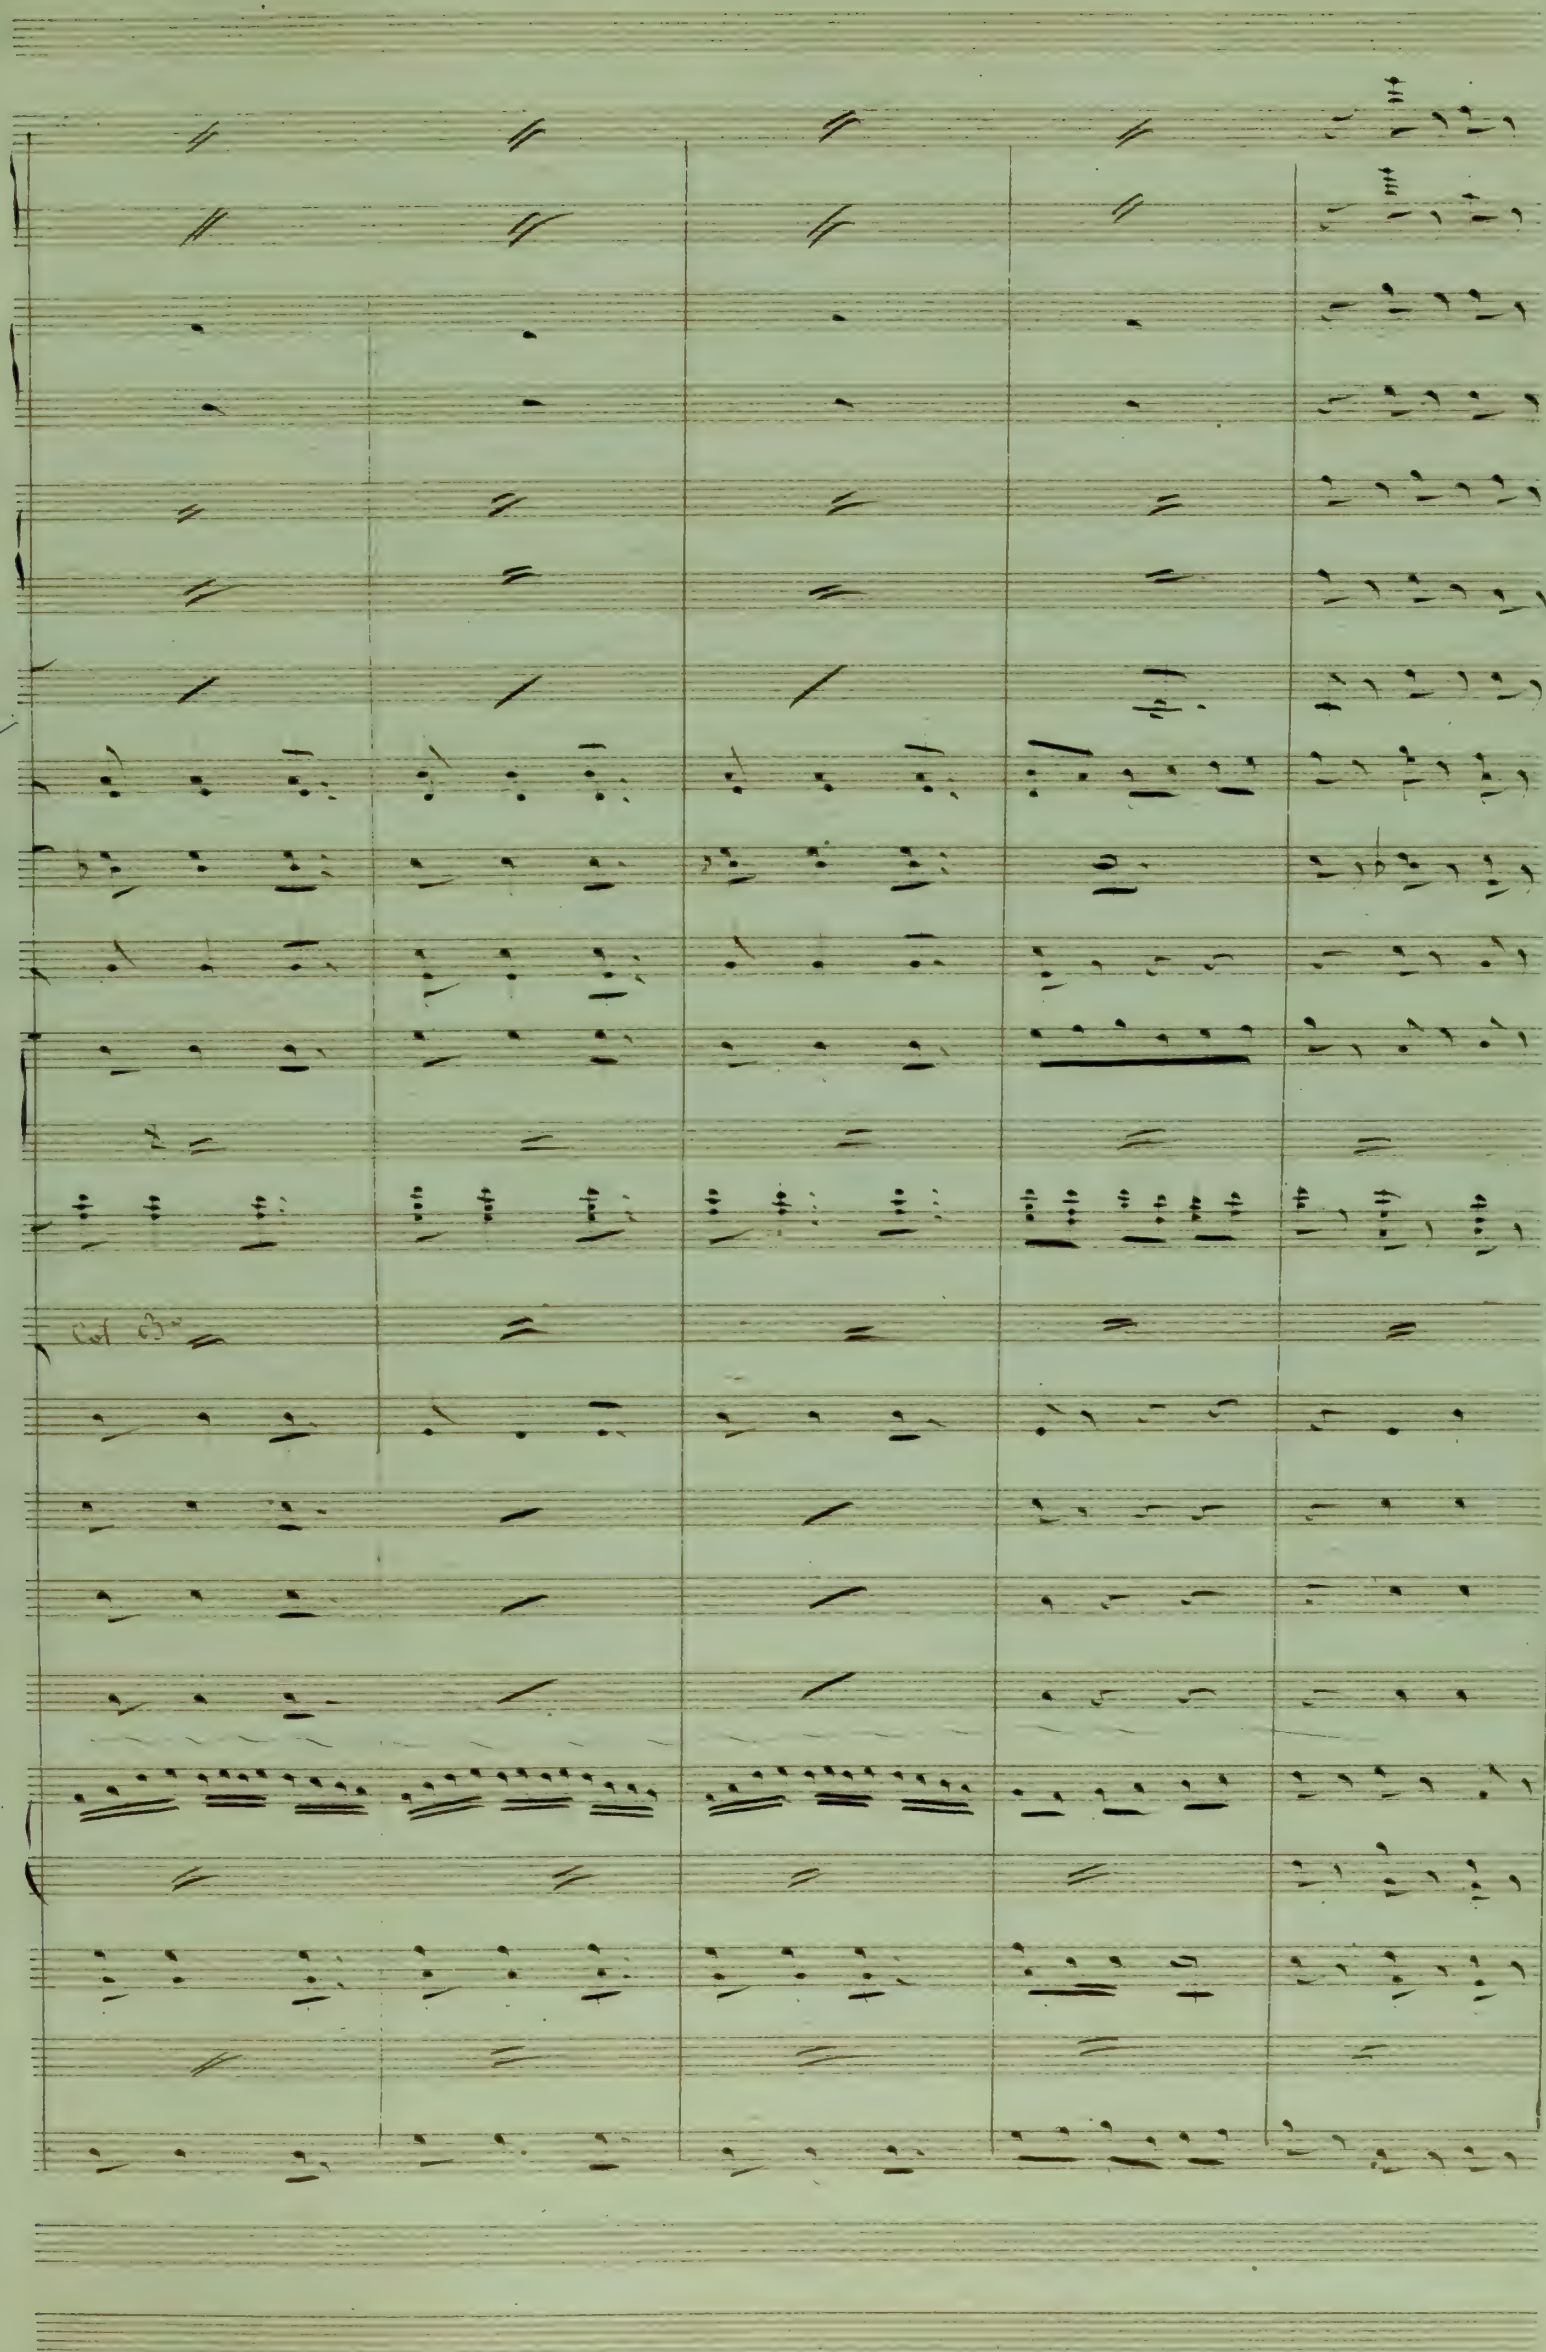 Col B°